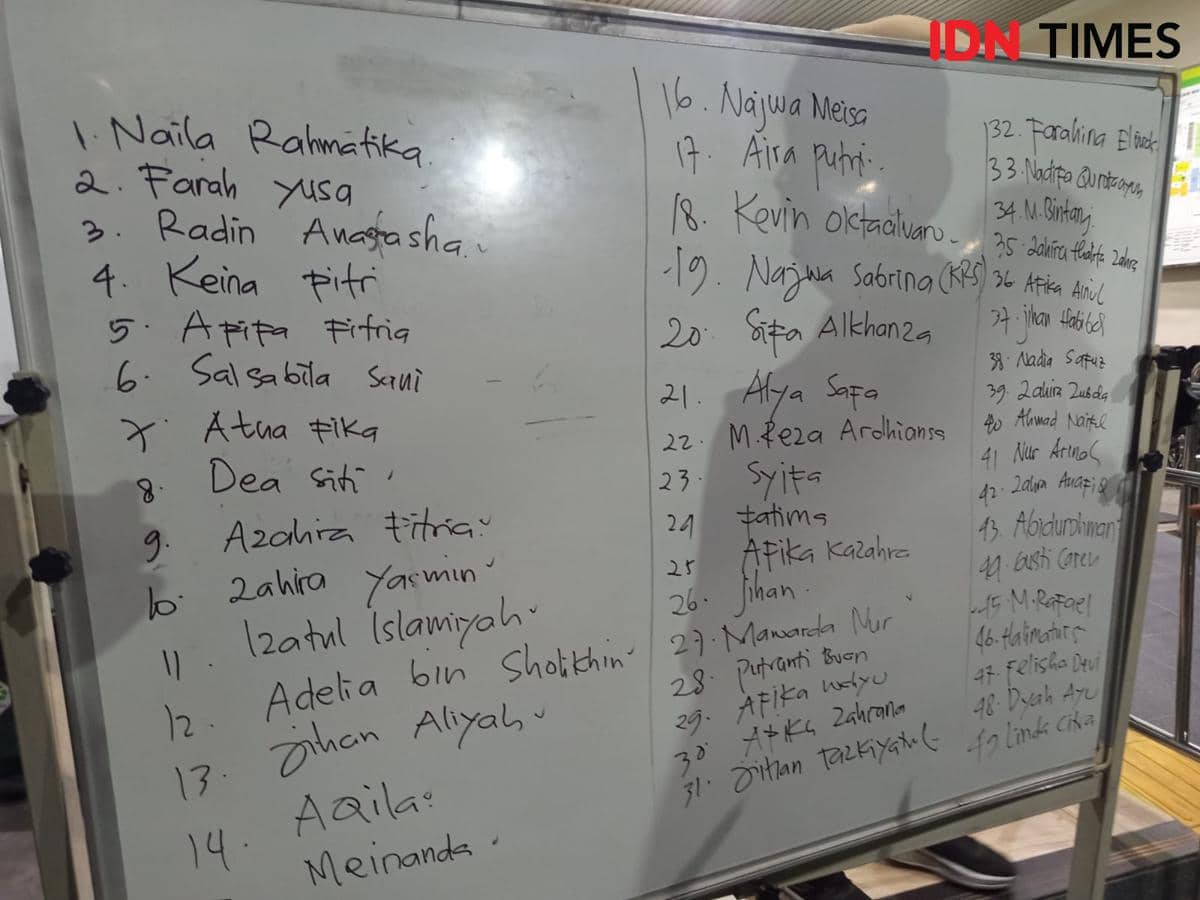 IDN TIMES
1. Naila Rahmatika
2. Farah Yusa
3. Radin Anastasha
4. Keina Fitri
5. Afifa Fitria
6. Salsabila Sani
7. Atha Fika
8. Dea Siti
9. Azahira Fitria
10. Zahira Yasmin
11. Izatul Islamiyah
12. Adelia bin Sholikhin
13. Jihan Aliyah
14. AQila
Meinanda
16. Najwa Meisa
17. Aira Putri
18. Kevin Oktaalvaro
19. Najwa Sabrina (KRS)
20. Sifa Alkhanza
21. Alya Safa
22. M. Reza Ardhiansa
23. Syifa
24 Fatima
25 Afika Kazahra
26. Jihan
27. Mawarda Nur
28. Putranti
29. Afika Wahyu
30 Afika Zahrana
31. Jihan Tazkiyatul
32. Farahina
33. Nadifa
34. M. Bintang
35. Zahira
36 Afika Ainul
37. Jihan
38. Nadia
39. Zahira
40 Ahmad
41 Nur
42. Zahra
43. Abidurohman
44. Gusti
45. M. Rafael
46. Halimatus
47. Felisha Dewi
48. Dyah Ayu
49 Linda Citra